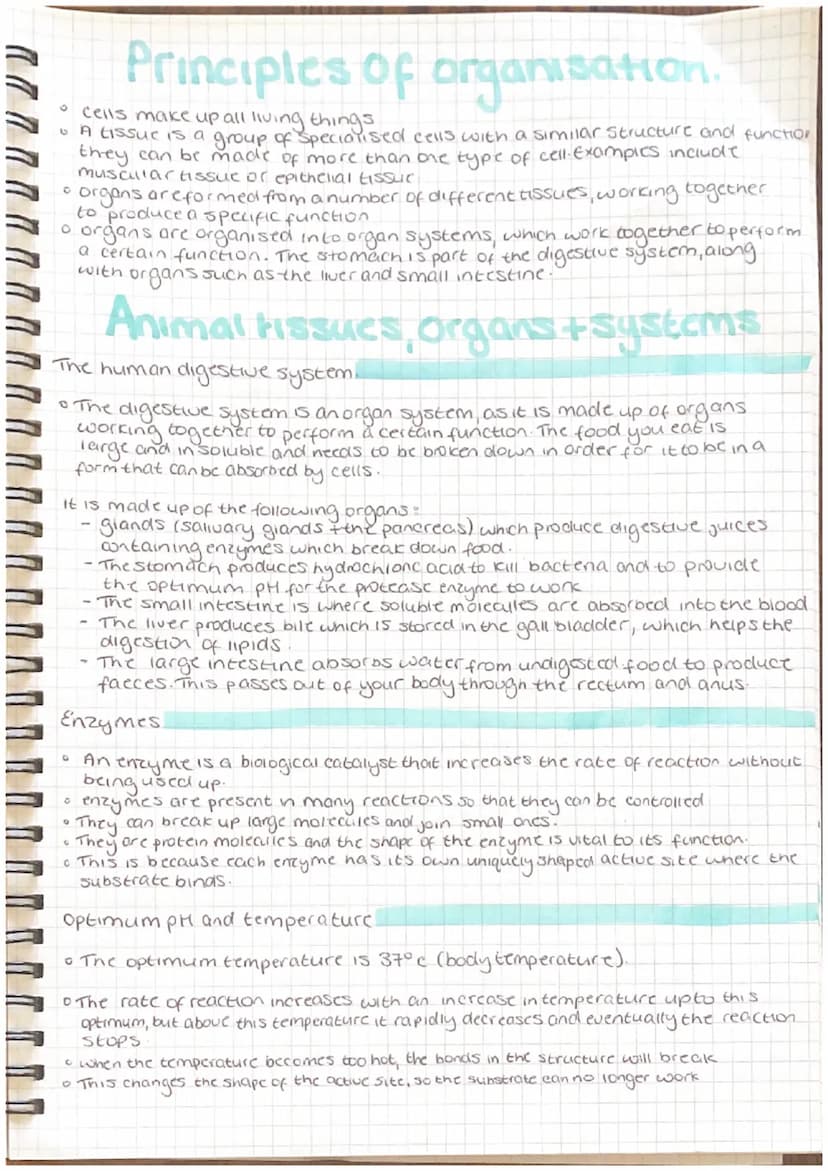 Principles of organisation.
cells make up all living things
A tissue is a group of specialised cells with a similar structure and function
they can be made of more than one type of cell. Examples include
muscular tissue or epithelial tissue
organs are formed from a number of different tissues, working together
to produce a specific function
organs are organised into organ systems, which work together to perform
a certain function. The stomach is part of the digestive system, along
with organs such as the liver and small intestine.
Animal tissues, organs + systems
The human digestive system.
The digestive system is an organ system, as it is made up of organs
working together to perform a certain function. The food you eat is
large and insoluble and needs to be broken down in order for it to be in a
form that can be absorbed by cells.
It is made up of the following organs:
- glands (salivary glands + the pancreas) which produce digestive juices
containing enzymes which break down food.
- The stomach produces hydrochloric acid to kill bacteria and to provide
the optimum pH for the protease enzyme to work
- The small intestine is where soluble molecules are absorbed into the blood
- The liver produces bile which is stored in the gall bladder, which helps the
digestion of lipids.
- The large intestine absorbs water from undigested food to product
faeces. This passes out of your body through the rectum and anus.
Enzymes
An enzyme is a biological catalyst that increases the rate of reaction without
being used up.
enzymes are present in many reactions so that they can be controlled
They can break up large molecules and join small ones.
They are protein molecules and the shape of the enzyme is vital to its function.
This is because each enzyme has its own uniquely shaped active site where the
substrate binds.
Optimum pH and temperature
The optimum temperature is 37°c (body temperature).
The rate of reaction increases with an increase in temperature up to this
optimum, but above this temperature it rapidly decreases and eventually the reaction
stops
when the temperature becomes too hot, the bonds in the structure will break
This changes the shape of the active site, so the substrate can no longer work